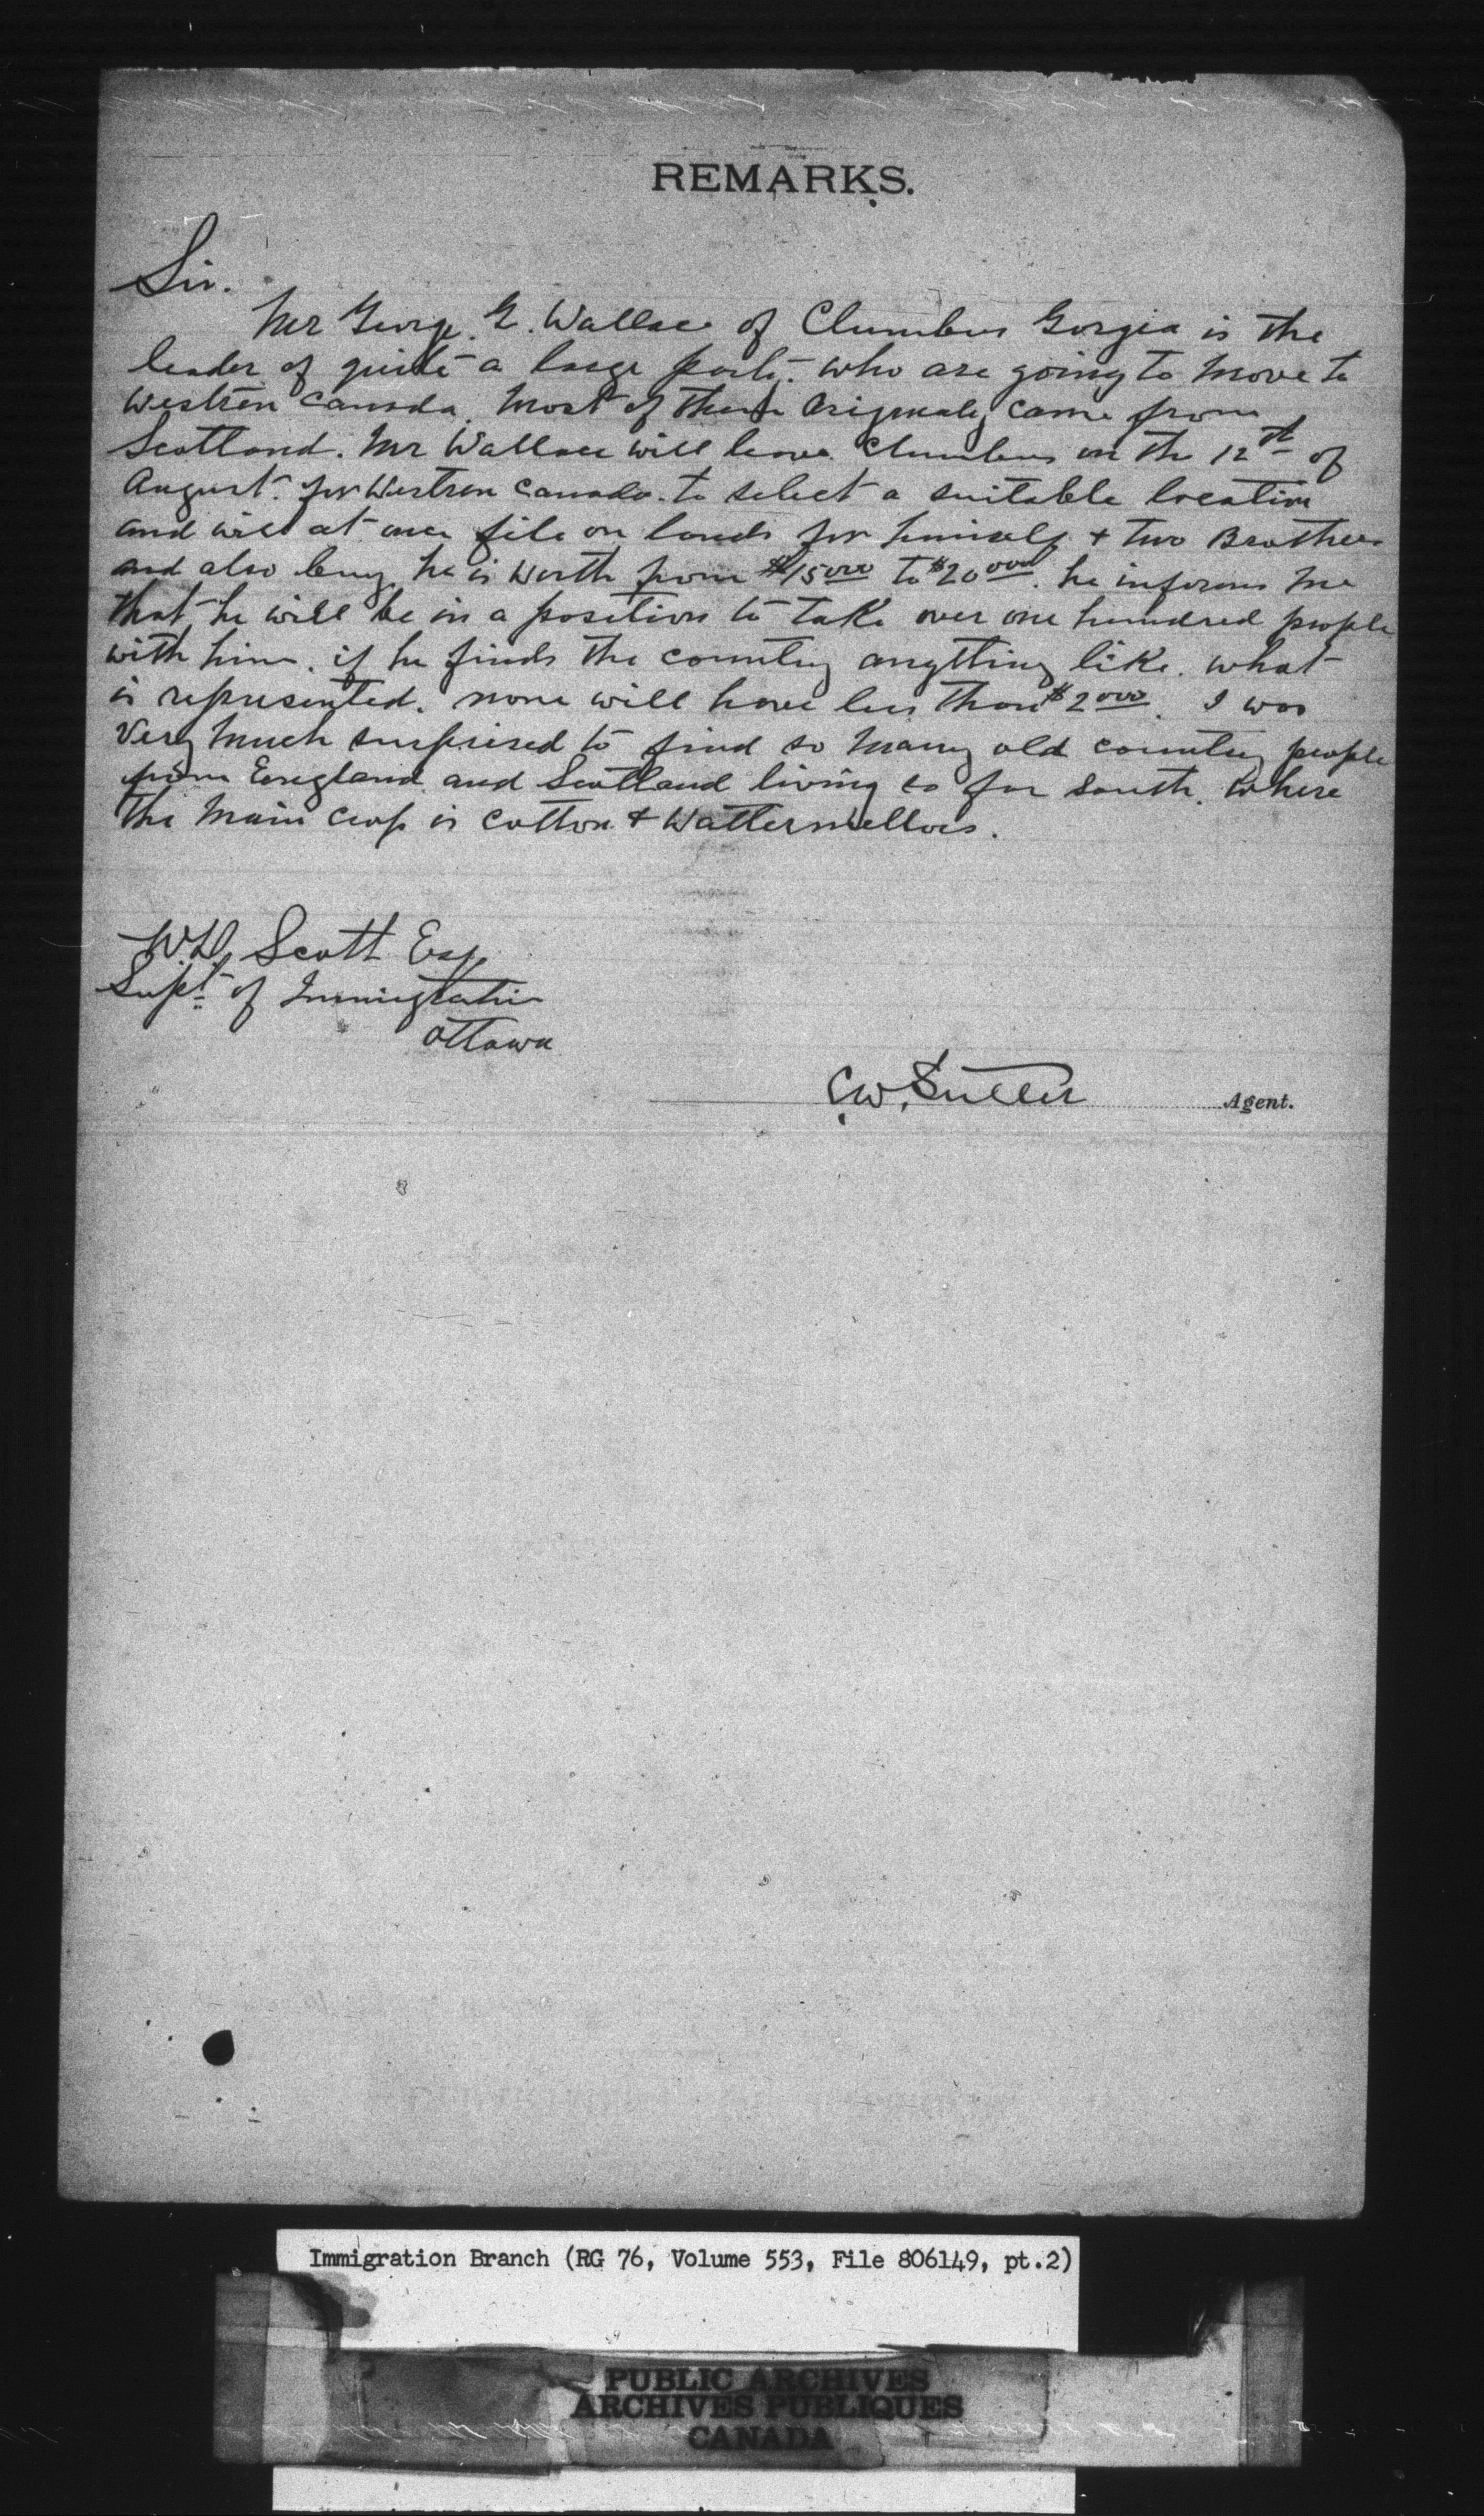 REMARKS.
Sir.
Mr George. E. Wallace of Clumbus Gorgia is the
leader of quite a large party. who are going to move to
Westren Canada. Most of them Originaly came from
Scotland. Mr Wallace will leave Clumbus on the 12th of
August. for Westren Canada. to select a suitable location
and will at once file on lands for himself + two Brothers
and also buy he is worth from $15000 to $20000. he informs me
that he will be in a position to take over one hundred people
with him. if he finds the country anything like. what
is represented. none will have less than $2000. I was
Very much surprised to find so many old country people
from England and Scotland living so far south. Where
the Main Crop is Cotton + Wattermellons.
W.D. Scott Esq
Supt of Immigration
Ottawa
C.W. Agent.
Immigration Branch (RG 76, Volume 553, File 806149, pt.2)
PUBLIC ARCHIVES
ARCHIVES PUBLIQUES
CANADA